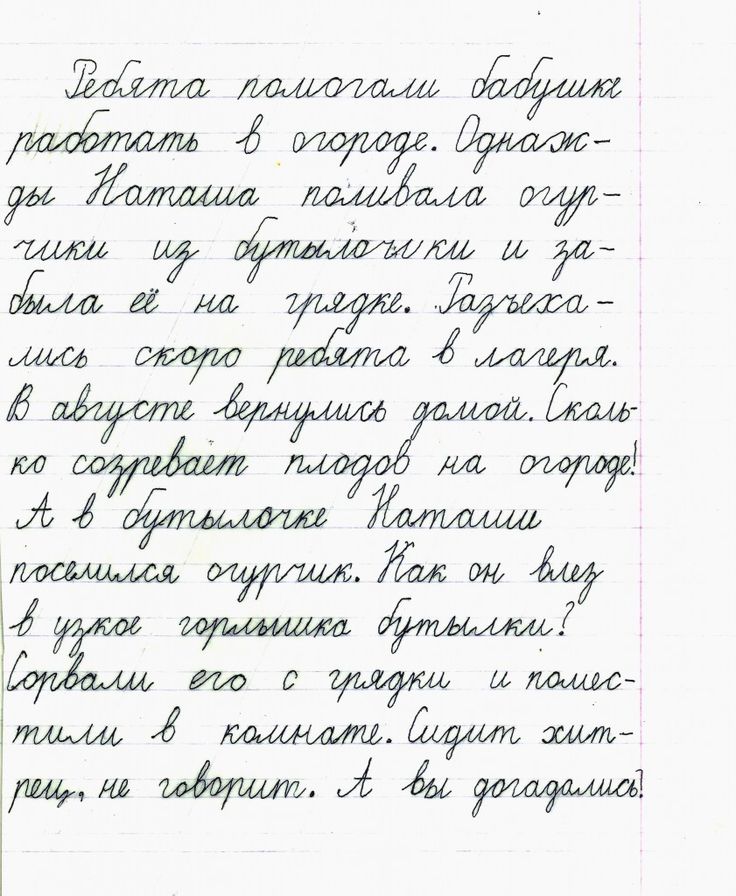 Ребята помогали бабушке
работать в огороде. Однаж-
ды Наташа поливала огур-
чики из бутылочки и за-
была её на грядке. Разъеха-
лись скоро ребята в лагеря.
В августе вернулись домой. Сколь-
ко созревает плодов на огороде!
А в бутылочке Наташи
поселился огурчик. Как он влез
в узкое горлышко бутылки?
Сорвали его с грядки и помес-
тили в комнате. Сидит хит-
рец, не говорит. А вы догадались?